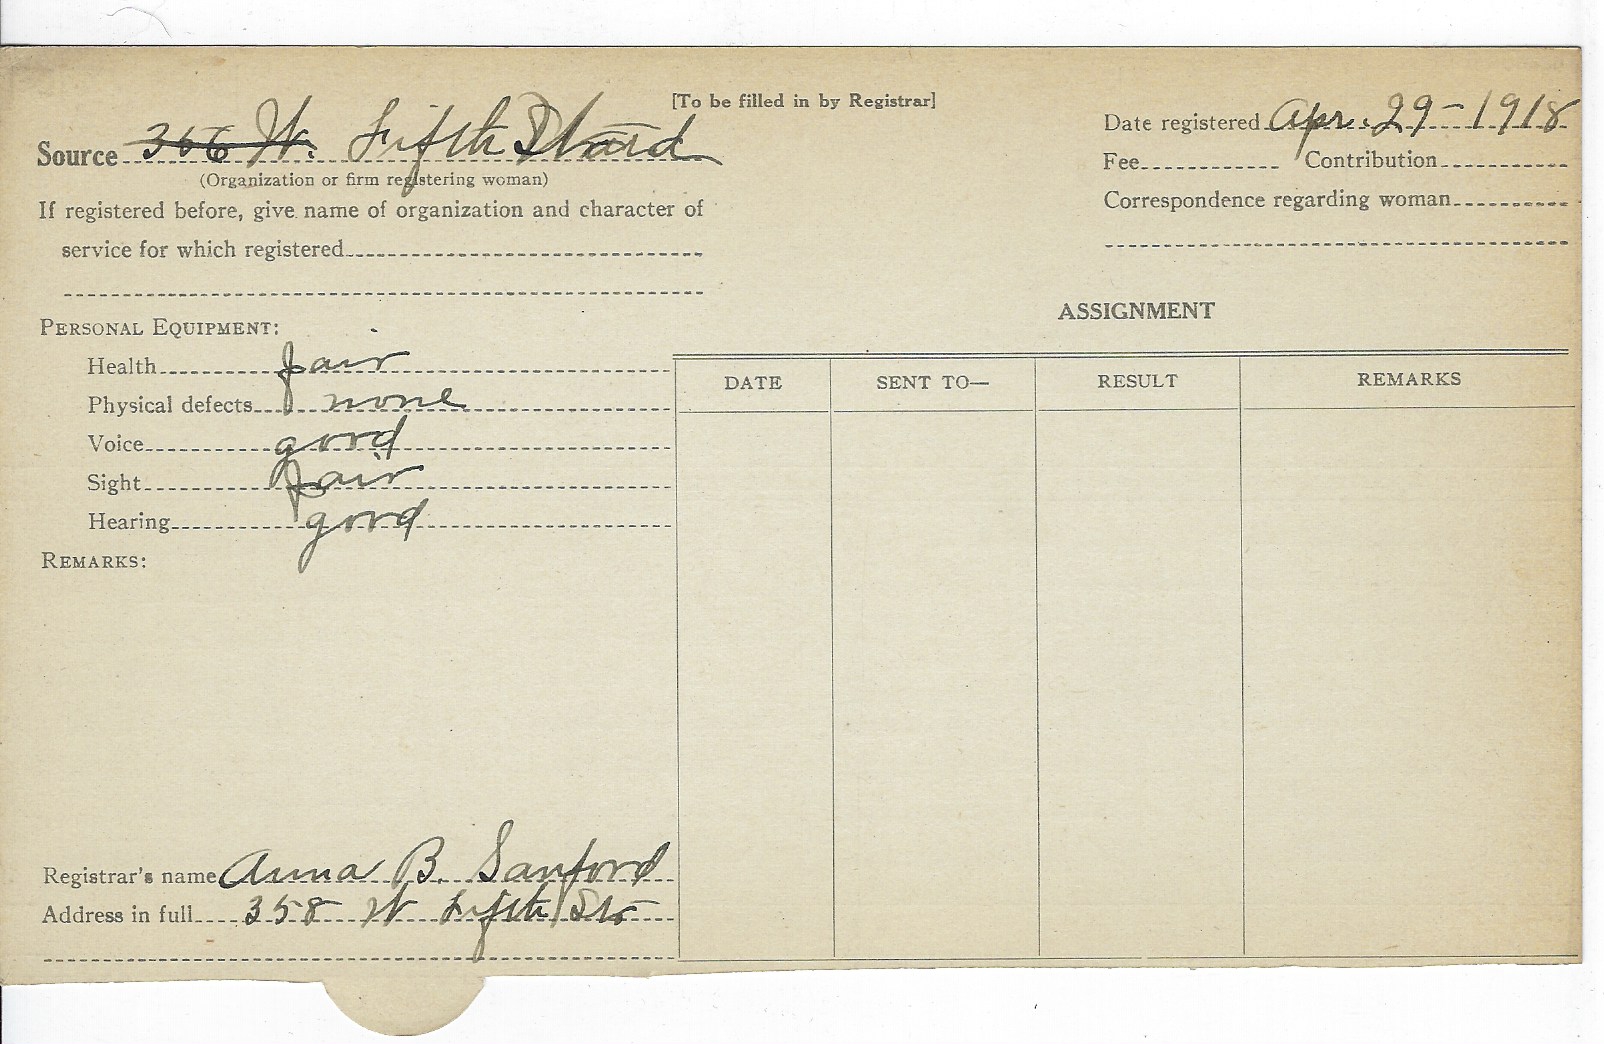 [To be filled in by Registrar]
Source 356 W. Fifth Ward
(Organization or firm registering woman)
If registered before, give name of organization and character of
service for which registered
Date registered Apr. 29 - 1918
Fee Contribution
Correspondence regarding woman
PERSONAL EQUIPMENT:
Health fair
Physical defects none
Voice good
Sight fair
Hearing good
REMARKS:
ASSIGNMENT
DATE SENT TO— RESULT REMARKS
Registrar's name Anna B. Sanford
Address in full 358 W Fifth St